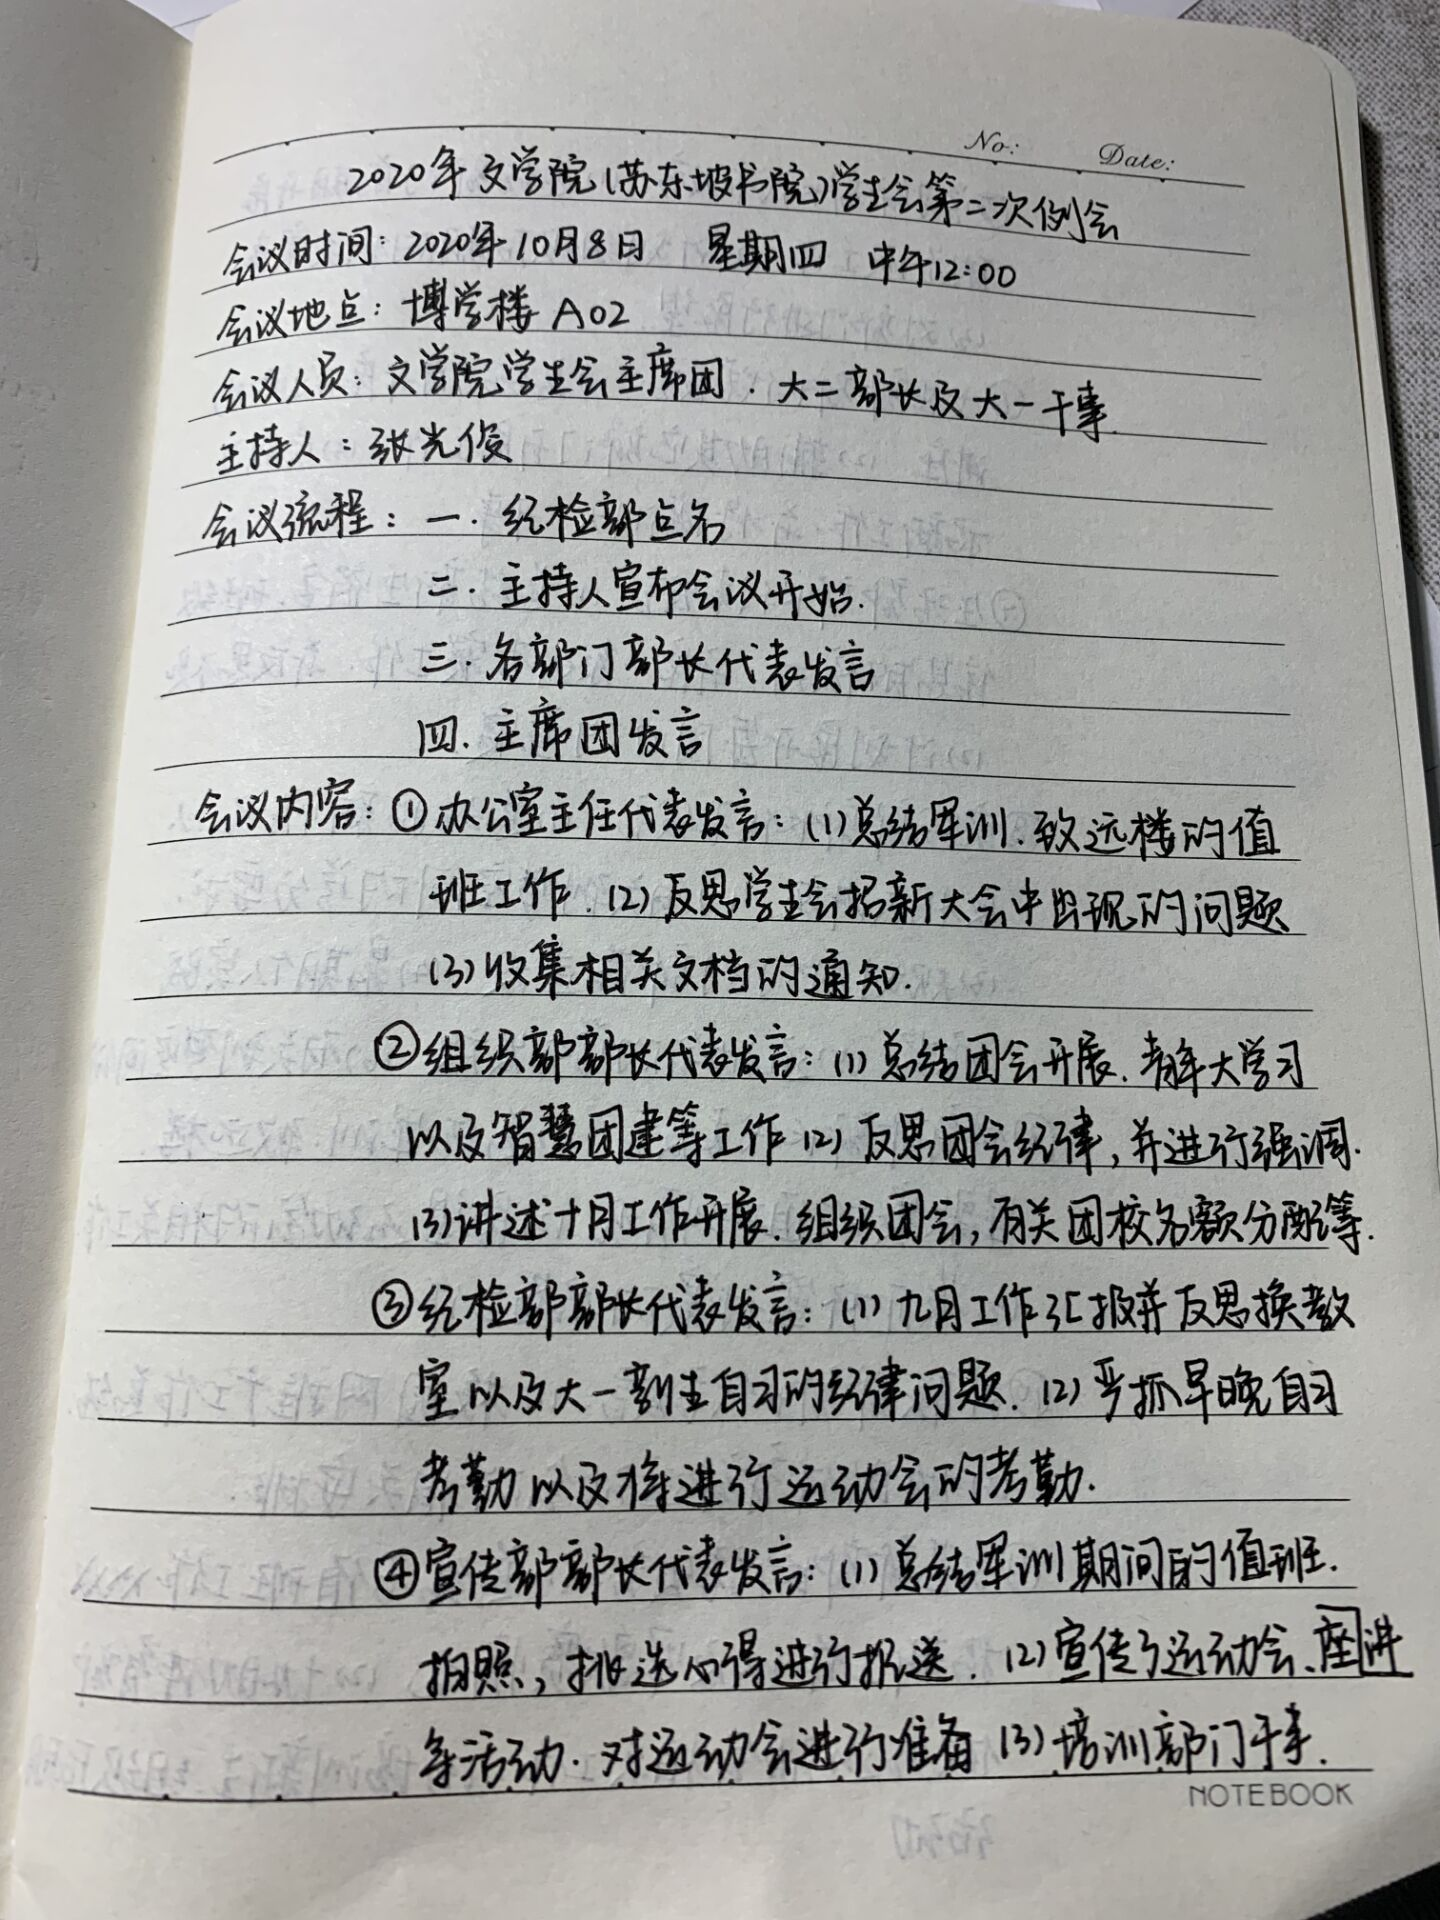 No: Date:
2020年文学院(苏东坡书院)学生会第二次例会
会议时间: 2020年10月8日 星期四 中午12:00
会议地点: 博学楼 A02
会议人员: 文学院学生会主席团. 大二部长及大一干事.
主持人: 张光俊
会议流程: 一. 纪检部点名
二. 主持人宣布会议开始.
三. 各部门部长代表发言
四. 主席团发言
会议内容: ①办公室主任代表发言: (1)总结军训.致远楼的值
班工作. (2)反思学生会招新大会中出现的问题
(3)收集相关文档的通知.
②组织部部长代表发言: (1)总结团会开展.青年大学习
以及智慧团建等工作 (2)反思团会纪律,并进行强调.
(3)讲述十月工作开展.组织团会,有关团校名额分配等.
③纪检部部长代表发言: (1)九月工作汇报并反思换教
室以及大一新生自习的纪律问题. (2)严抓早晚自习
考勤以及将进行运动会的考勤.
④宣传部部长代表发言: (1)总结军训期间的值班.
拍照,挑选心得进行推送. (2)宣传了运动会、座进
等活动.对运动会进行准备 (3)培训部门干事.
NOTEBOOK